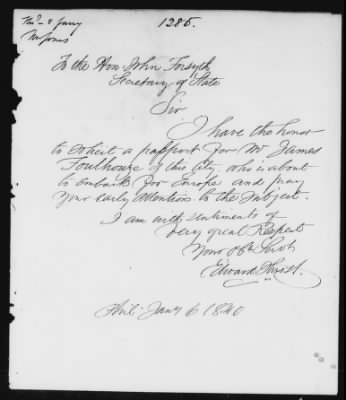 1285.
To the Hon John Forsyth
Secretary of State
Sir
I have the honor
to solicit a passport for Mr James
Foulhouze of this City who is about
to embark for Europe and pray
your early attention to the subject.
I am with sentiments of
very great Respect
Your Obt Servt
Edward
Phil. Jany 6 1840